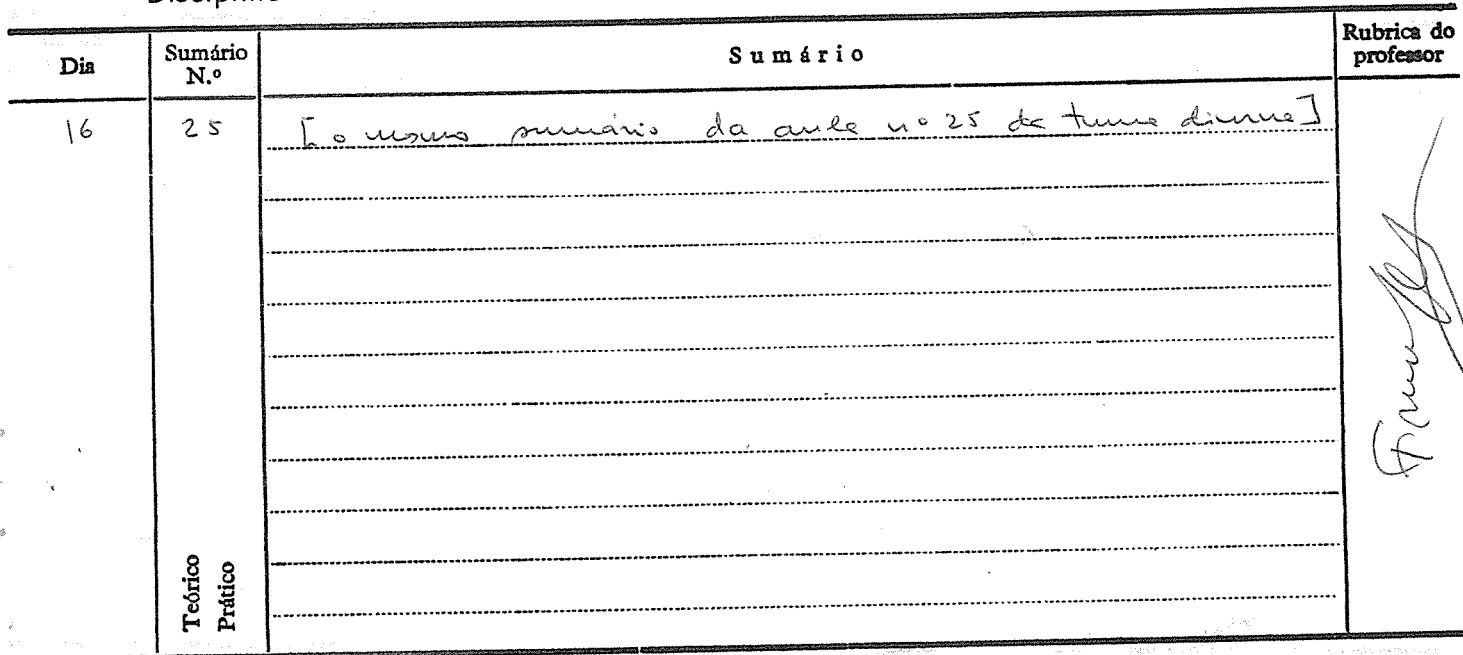 Dia
Sumário N.º
Sumário
Rubrica do professor
16
25
[o mesmo sumário da aula nº 25 da turma diurna]
Teórico
Prático